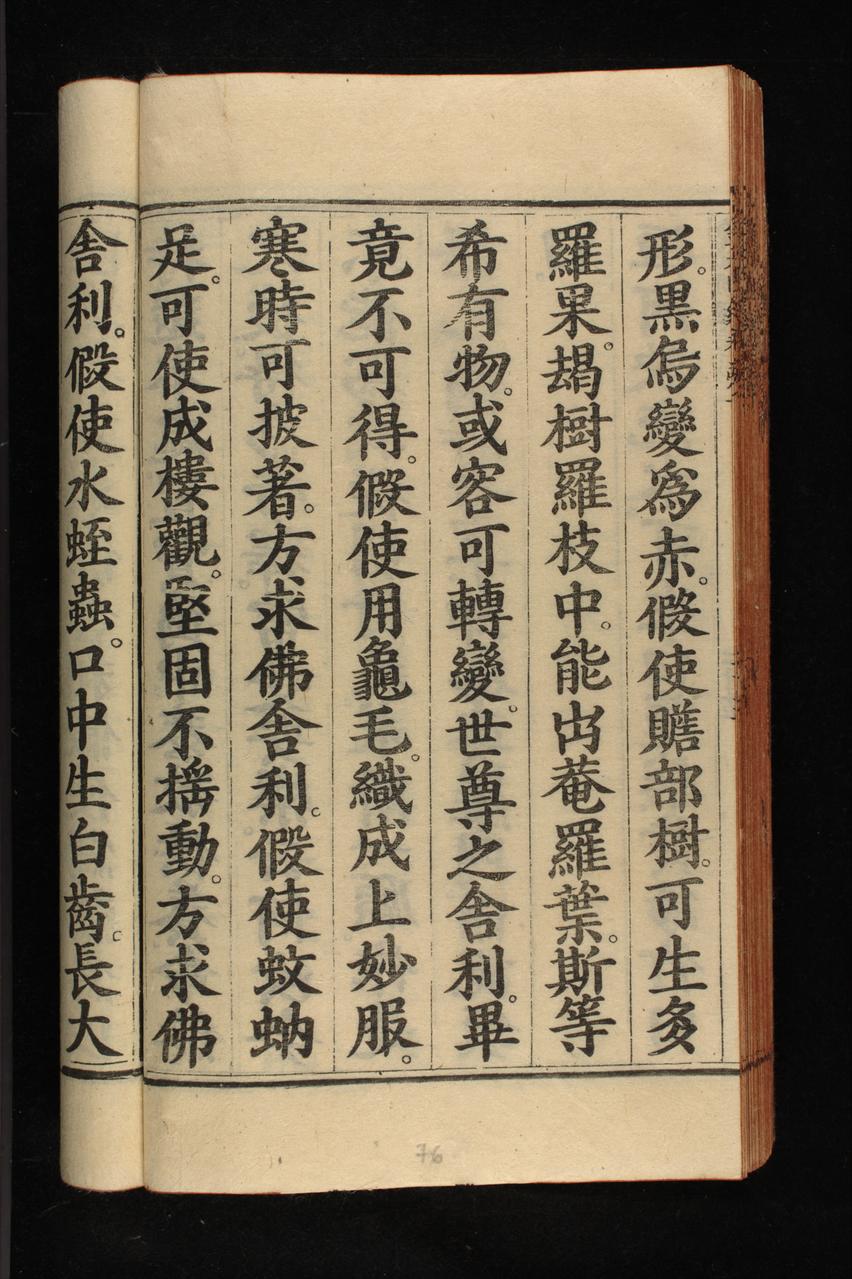 形。黒烏變爲赤。假使贍部樹。可生多
羅果。朅樹羅枝中。能出菴羅葉。斯等
希有物。或容可轉變。世尊之舍利。畢
竟不可得。假使用龜毛。織成上妙服。
寒時可披著。方求佛舍利。假使蚊蚋
足。可使成樓觀。堅固不揺動。方求佛
舍利。假使水蛭蟲。口中生白齒。長大
76